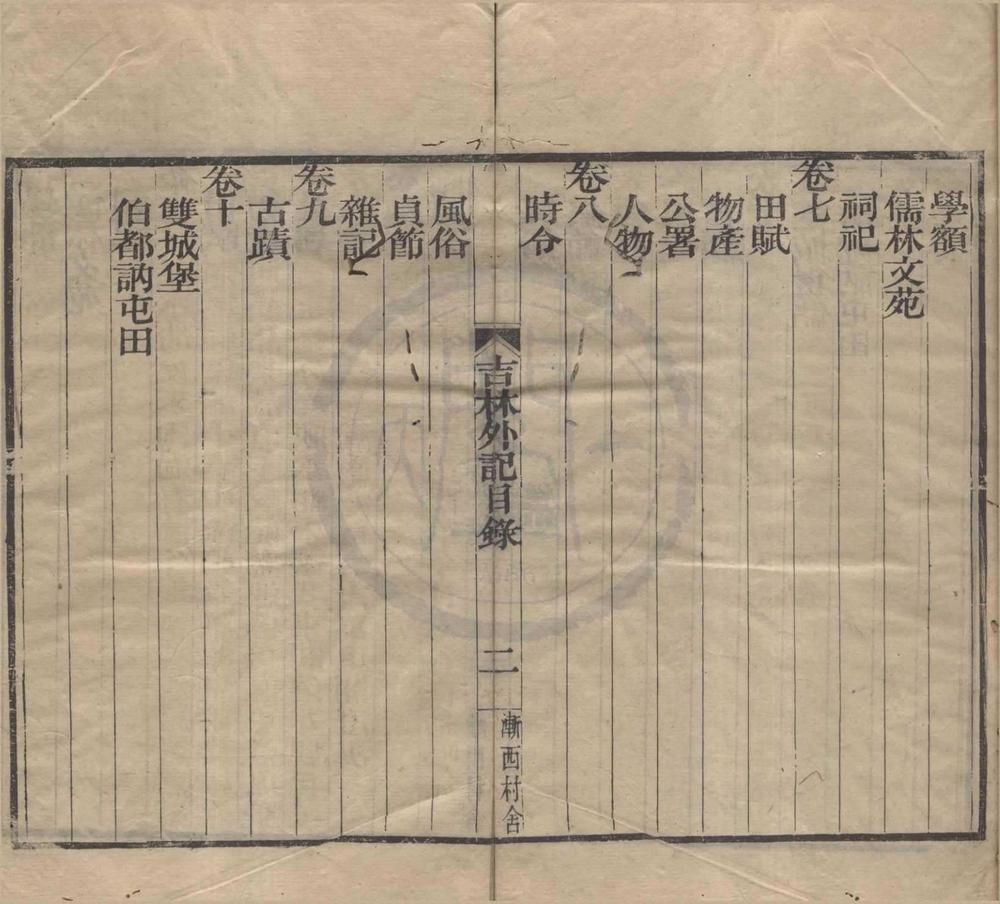 學額
儒林文苑
祠祀
卷七
田賦
物產
公署
人物
卷八
時令
吉林外記目錄
二
漸西村舍
風俗
貞節
雜記
卷九
古蹟
卷十
雙城堡
伯都訥屯田